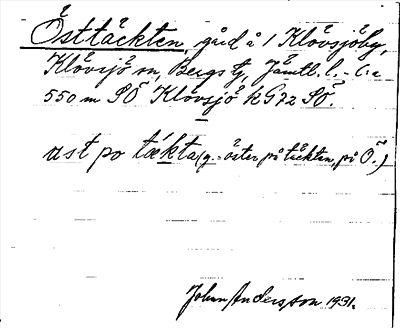 Östtäckten, gård å 1 Klövsjöby,
Klövsjö sn, Bergs tg, Jämtl. l. - C:a
550 m SÖ Klövsjö k G72 SÖ.
ust po täkta (g. = öster på täckten, på Ö.)
Johan Andersson 1931.